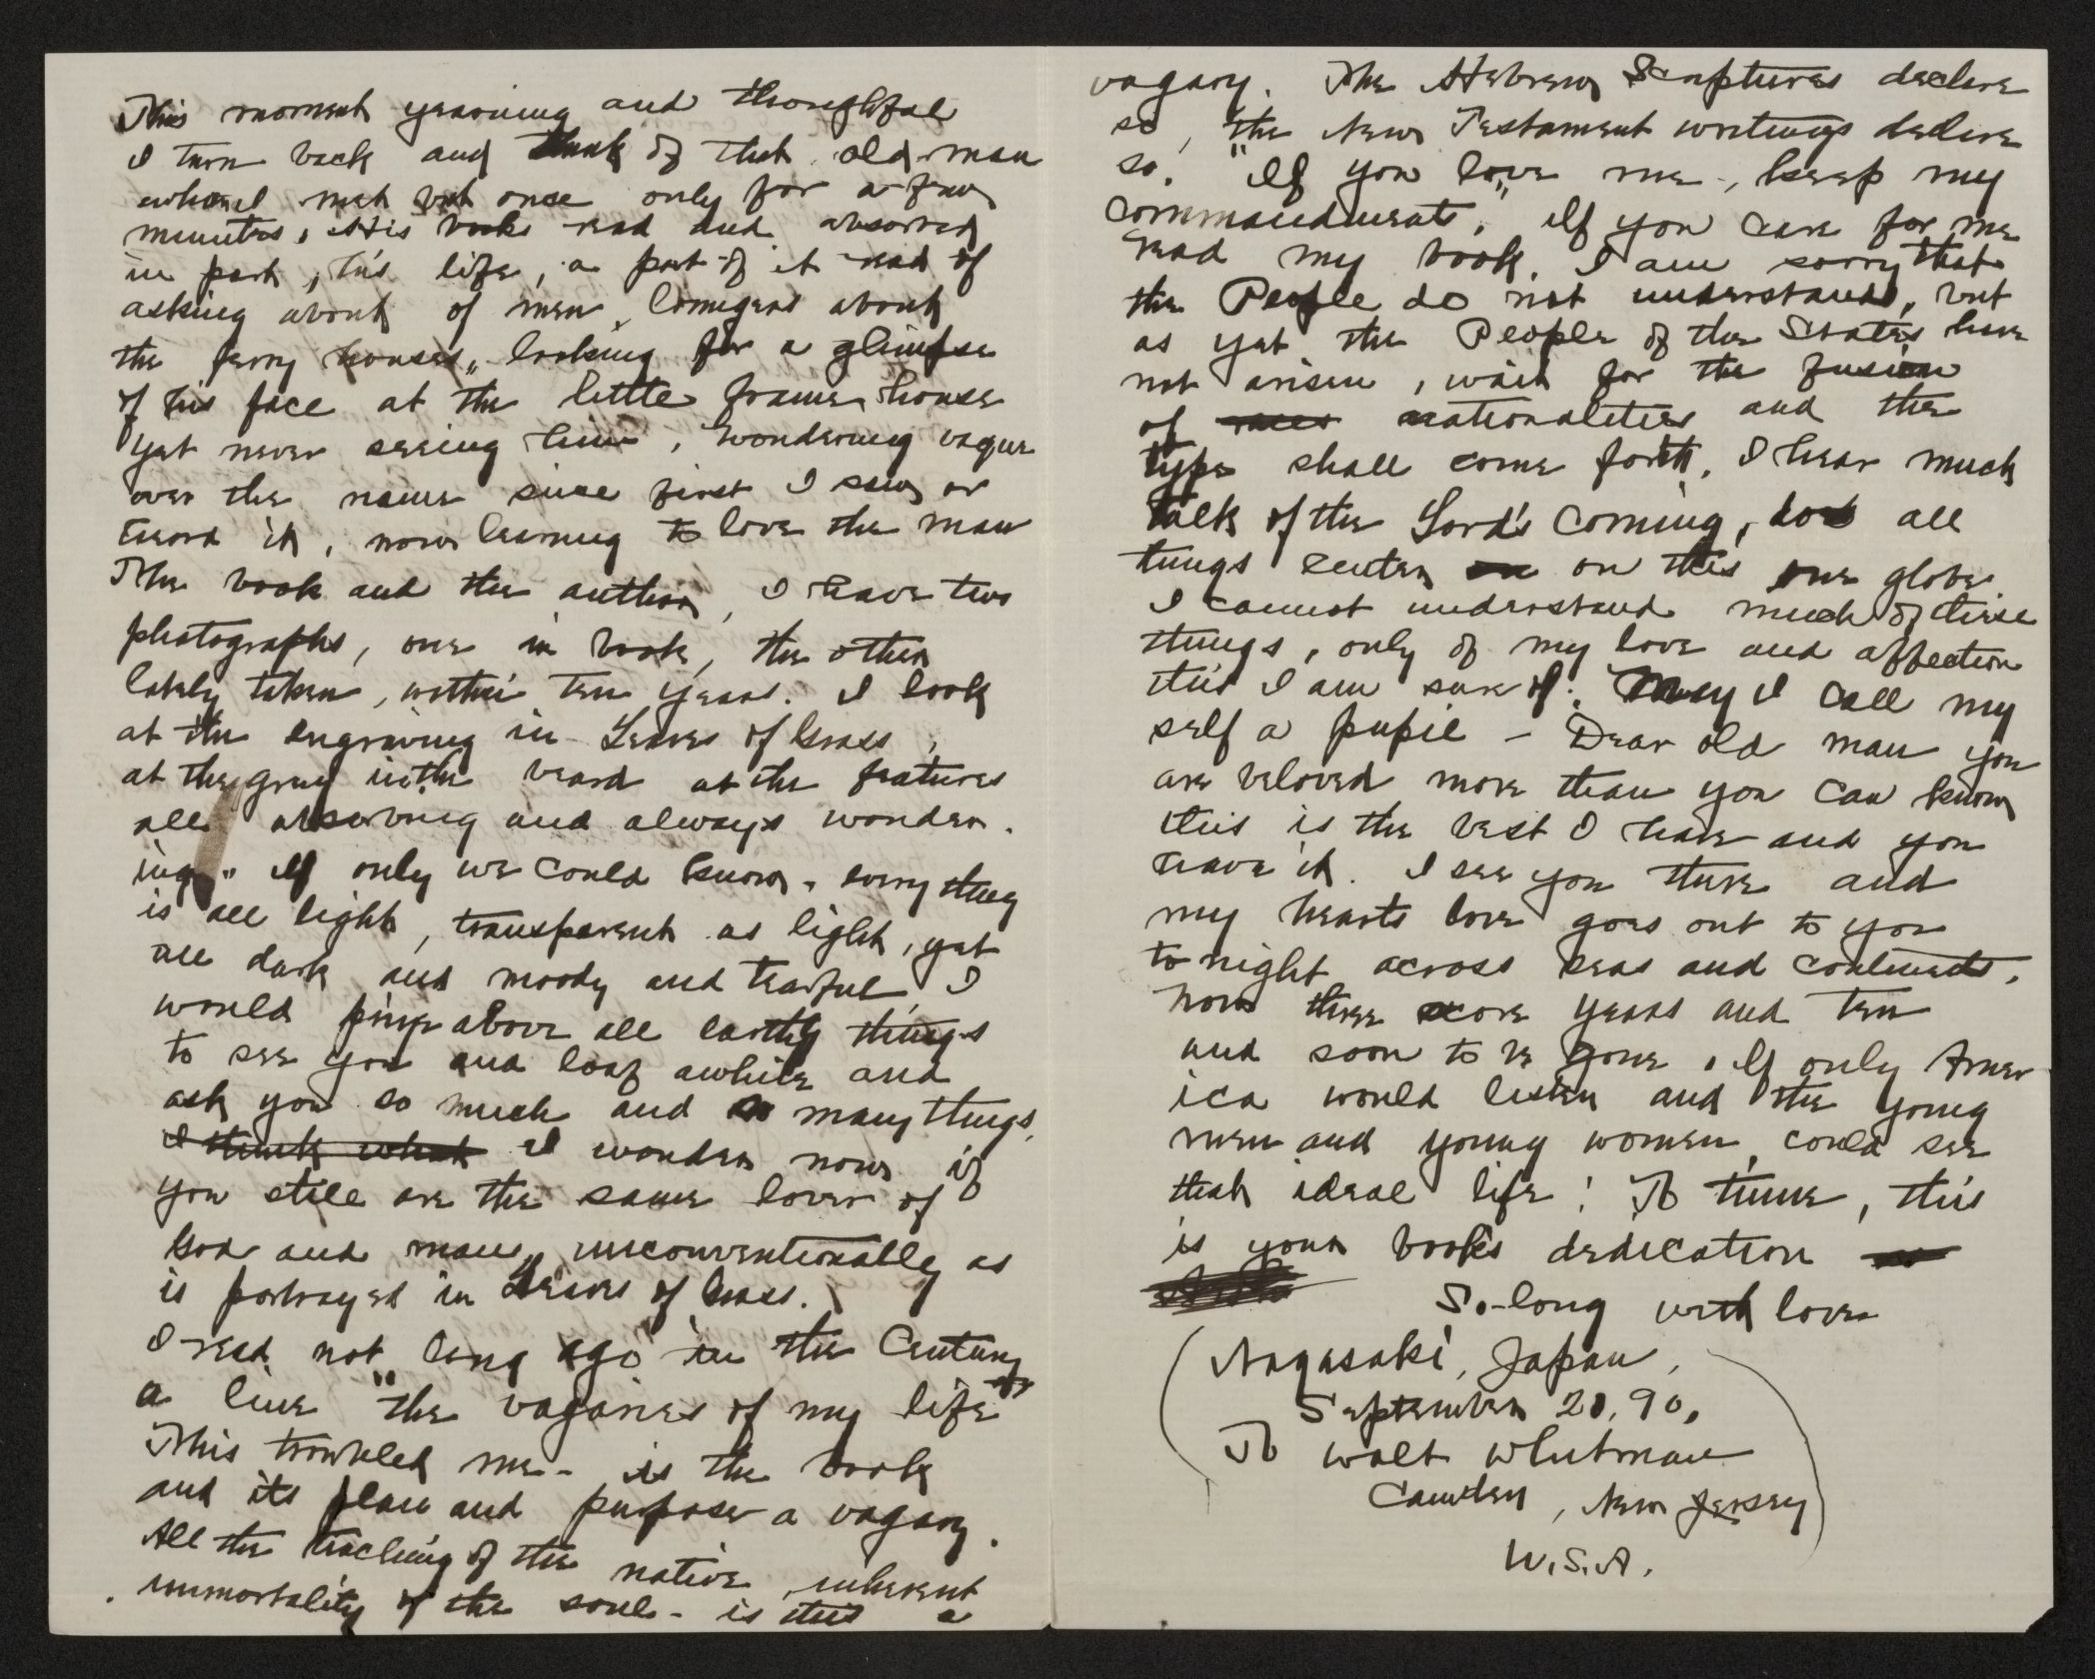 This moment yearning and thoughtful
I turn back and think of that old man
whom I met but once only for a few
minutes, His books read and absorbed
in part, his life, a part of it read of
asking about of men, lingered about
the ferry houses, looking for a glimpse
of his face at the little frame house
yet never seeing him, wondering vague
over the name since first I saw or
heard it, now learning to love the man
The book and the author, I have two
photographs, one in book, the other
lately taken, within ten years. I look
at the engraving in Leaves of Grass,
at the gray in the beard at the features
all absorbing and always wonder-
ing" If only we could know - every thing
is all light, transparent as light, yet
all dark and moody and tearful, I
would above all earthly things
to see you and loaf awhile and
ask you so much and so many things,
I think what I wonder now if
you still are the same lover of
God and man, unconventionally as
is portrayed in Leaves of Grass.
I read not long ago in the Century
a line "the vagaries of my life"
This troubled me - is the book
and its plan and purpose a vagary.
All the teaching of the native, inherent
immortality of the soul - is this a
vagary. The Hebrew Scriptures declare
so, the New Testament writings declare
so. "If you love me, keep my
commandments," If you care for me
read my book. I am sorry that
the People do not understand, but
as yet the People of the States have
not arisen, wait for the fusion
of races nationalities and the
type shall come forth, I hear much
talk of the Lord's coming, do all
things center on on this one globe
I cannot understand much of these
things, only of my love and affection
this I am sure of. May I call my
self a pupil - Dear old man you
are beloved more than you can know
this is the best I have and you
have it. I see you there and
my hearts love goes out to you
to night across seas and continents,
now three score years and ten
and soon to be gone, If only Amer
ica would listen and the young
men and young women could see
that ideal life! To time, this
is your book's dedication
So-long with love
(Nagasaki, Japan,
September 20, 90,
To Walt Whitman
Camden, New Jersey
U.S.A.)